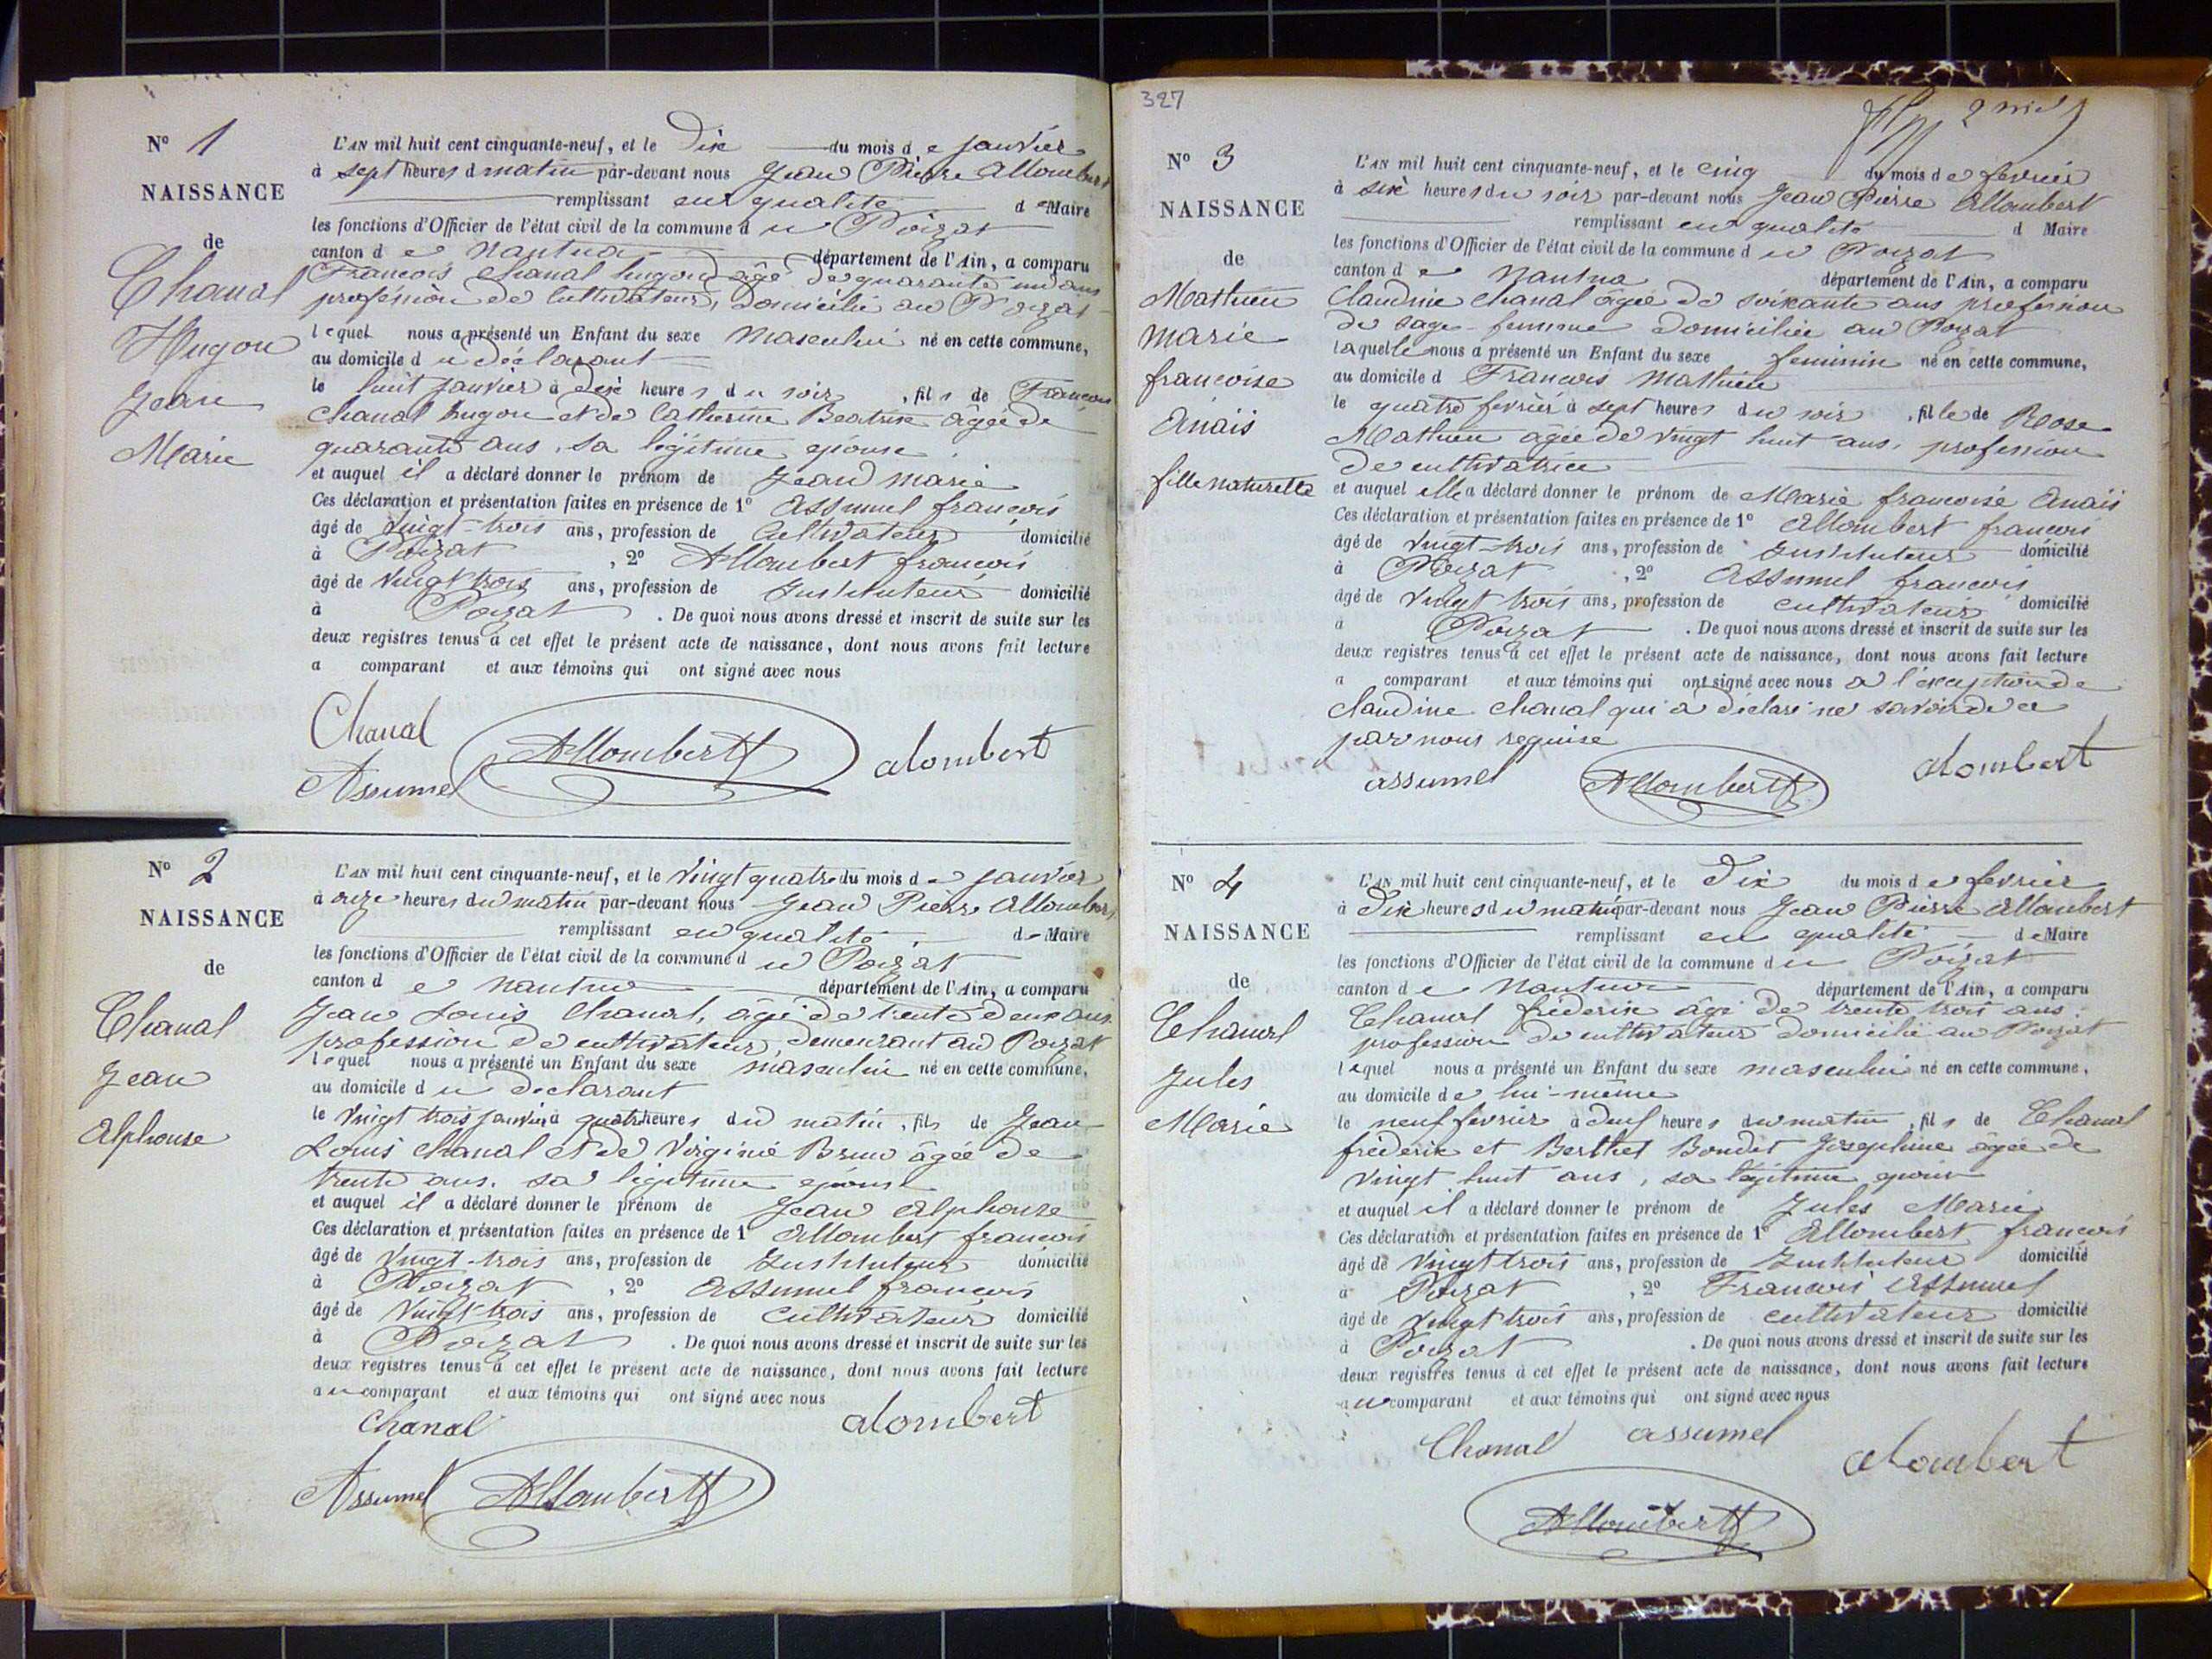 N° 1
NAISSANCE
de
Chanal
Hugon
Jean
Marie
L'AN mil huit cent cinquante-neuf, et le Dix du mois de janvier
à sept heures d matin par-devant nous Jean Pierre Allombert
remplissant en qualité de Maire
les fonctions d'Officier de l'état civil de la commune du Poizat
canton de Nantua département de l'Ain, a comparu
François Chanal hugon âgé de quarante un ans
proféssion de Cultivateur, domicilié au Poizat
lequel nous a présenté un Enfant du sexe Masculin né en cette commune,
au domicile du déclarant
le huit janvier à dix heures du soir, fils de François
Chanal hugon et de Catherine Beatrix âgée de
quarante ans, sa légitime épouse
et auquel il a déclaré donner le prénom de Jean marie
Ces déclaration et présentation faites en présence de 1° Assumel françois
âgé de Vingt-trois ans, profession de Cultivateur domicilié
à Poizat, 2° Allombert françois
âgé de Vingt trois ans, profession de Instituteur domicilié
à Poizat. De quoi nous avons dressé et inscrit de suite sur les
deux registres tenus à cet effet le présent acte de naissance, dont nous avons fait lecture
a comparant et aux témoins qui ont signé avec nous
Chanal
Assumel Allombert alombert
N° 2
NAISSANCE
de
Chanal
Jean
Alphonse
L'AN mil huit cent cinquante-neuf, et le Vingt quatre du mois de janvier
à onze heures du matin par-devant nous Jean Pierre Allombert
remplissant en qualité de Maire
les fonctions d'Officier de l'état civil de la commune du Poizat
canton de Nantua département de l'Ain, a comparu
Jean Louis Chanal, âgé de trente deux ans
profession de cultivateur, demeurant au Poizat
lequel nous a présenté un Enfant du sexe masculin né en cette commune,
au domicile du declarant
le Vingt trois janvier à quatre heures du matin, fils de Jean
Louis Chanal et de Virginie Brun âgée de
trente ans. sa légitime épouse
et auquel il a déclaré donner le prénom de Jean Alphonse
Ces déclaration et présentation faites en présence de 1° Allombert francois
âgé de Vingt-trois ans, profession de Instituteur domicilié
à Poizat, 2° Assumel francois
âgé de Vingt trois ans, profession de Cultivateur domicilié
à Poizat. De quoi nous avons dressé et inscrit de suite sur les
deux registres tenus à cet effet le présent acte de naissance, dont nous avons fait lecture
au comparant et aux témoins qui ont signé avec nous
Chanal alombert
Assumel Allombert
327
N° 3
NAISSANCE
de
Mathieu
Marie
francoise
Anais
fille naturelle
L'AN mil huit cent cinquante-neuf, et le cinq du mois de fevrier
à six heures du soir par-devant nous Jean Pierre Allombert
remplissant en qualité d Maire
les fonctions d'Officier de l'état civil de la commune du Poizat
canton de Nantua département de l'Ain, a comparu
Claudine Chanal âgée de soixante ans profession
de sage-femme domiciliée au Poizat
laquelle nous a présenté un Enfant du sexe feminin né en cette commune,
au domicile d Francois Mathieu
le quatre fevrier à sept heures du soir, fille de Rose
Mathieu âgée de vingt huit ans, profession
de cultivatrice
et auquel elle a déclaré donner le prénom de Marie francoise Anais
Ces déclaration et présentation faites en présence de 1° Allombert francois
âgé de Vingt-trois ans, profession de Instituteur domicilié
à Poizat, 2° Assumel francois
âgé de Vingt trois ans, profession de cultivateur domicilié
à Poizat. De quoi nous avons dressé et inscrit de suite sur les
deux registres tenus à cet effet le présent acte de naissance, dont nous avons fait lecture
a comparant et aux témoins qui ont signé avec nous a l'exception de
Claudine Chanal qui a declaré ne savoir de ce
par nous requise
assumel Allombert alombert
N° 4
NAISSANCE
de
Chanal
Jules
Marie
L'AN mil huit cent cinquante-neuf, et le Dix du mois de fevrier
à Dix heures du matin par-devant nous Jean Pierre Allombert
remplissant en qualité de Maire
les fonctions d'Officier de l'état civil de la commune du Poizat
canton de Nantua département de l'Ain, a comparu
Chanal fréderik âgé de trente trois ans.
profession de cultivateur domicilié au Poizat
lequel nous a présenté un Enfant du sexe masculin né en cette commune,
au domicile de lui-même
le neuf fevrier à deux heures du matin, fils de Chanal
fréderik et Berthet Bondet Joséphine âgée de
vingt huit ans, sa légitime épouse
et auquel il a déclaré donner le prénom de Jules Marie
Ces déclaration et présentation faites en présence de 1° Allombert francois
âgé de Vingt trois ans, profession de Instituteur domicilié
à Poizat, 2° Francois Assumel
âgé de Vingt trois ans, profession de cultivateur domicilié
à Poizat. De quoi nous avons dressé et inscrit de suite sur les
deux registres tenus à cet effet le présent acte de naissance, dont nous avons fait lecture
au comparant et aux témoins qui ont signé avec nous
Chanal assumel alombert
Allombert